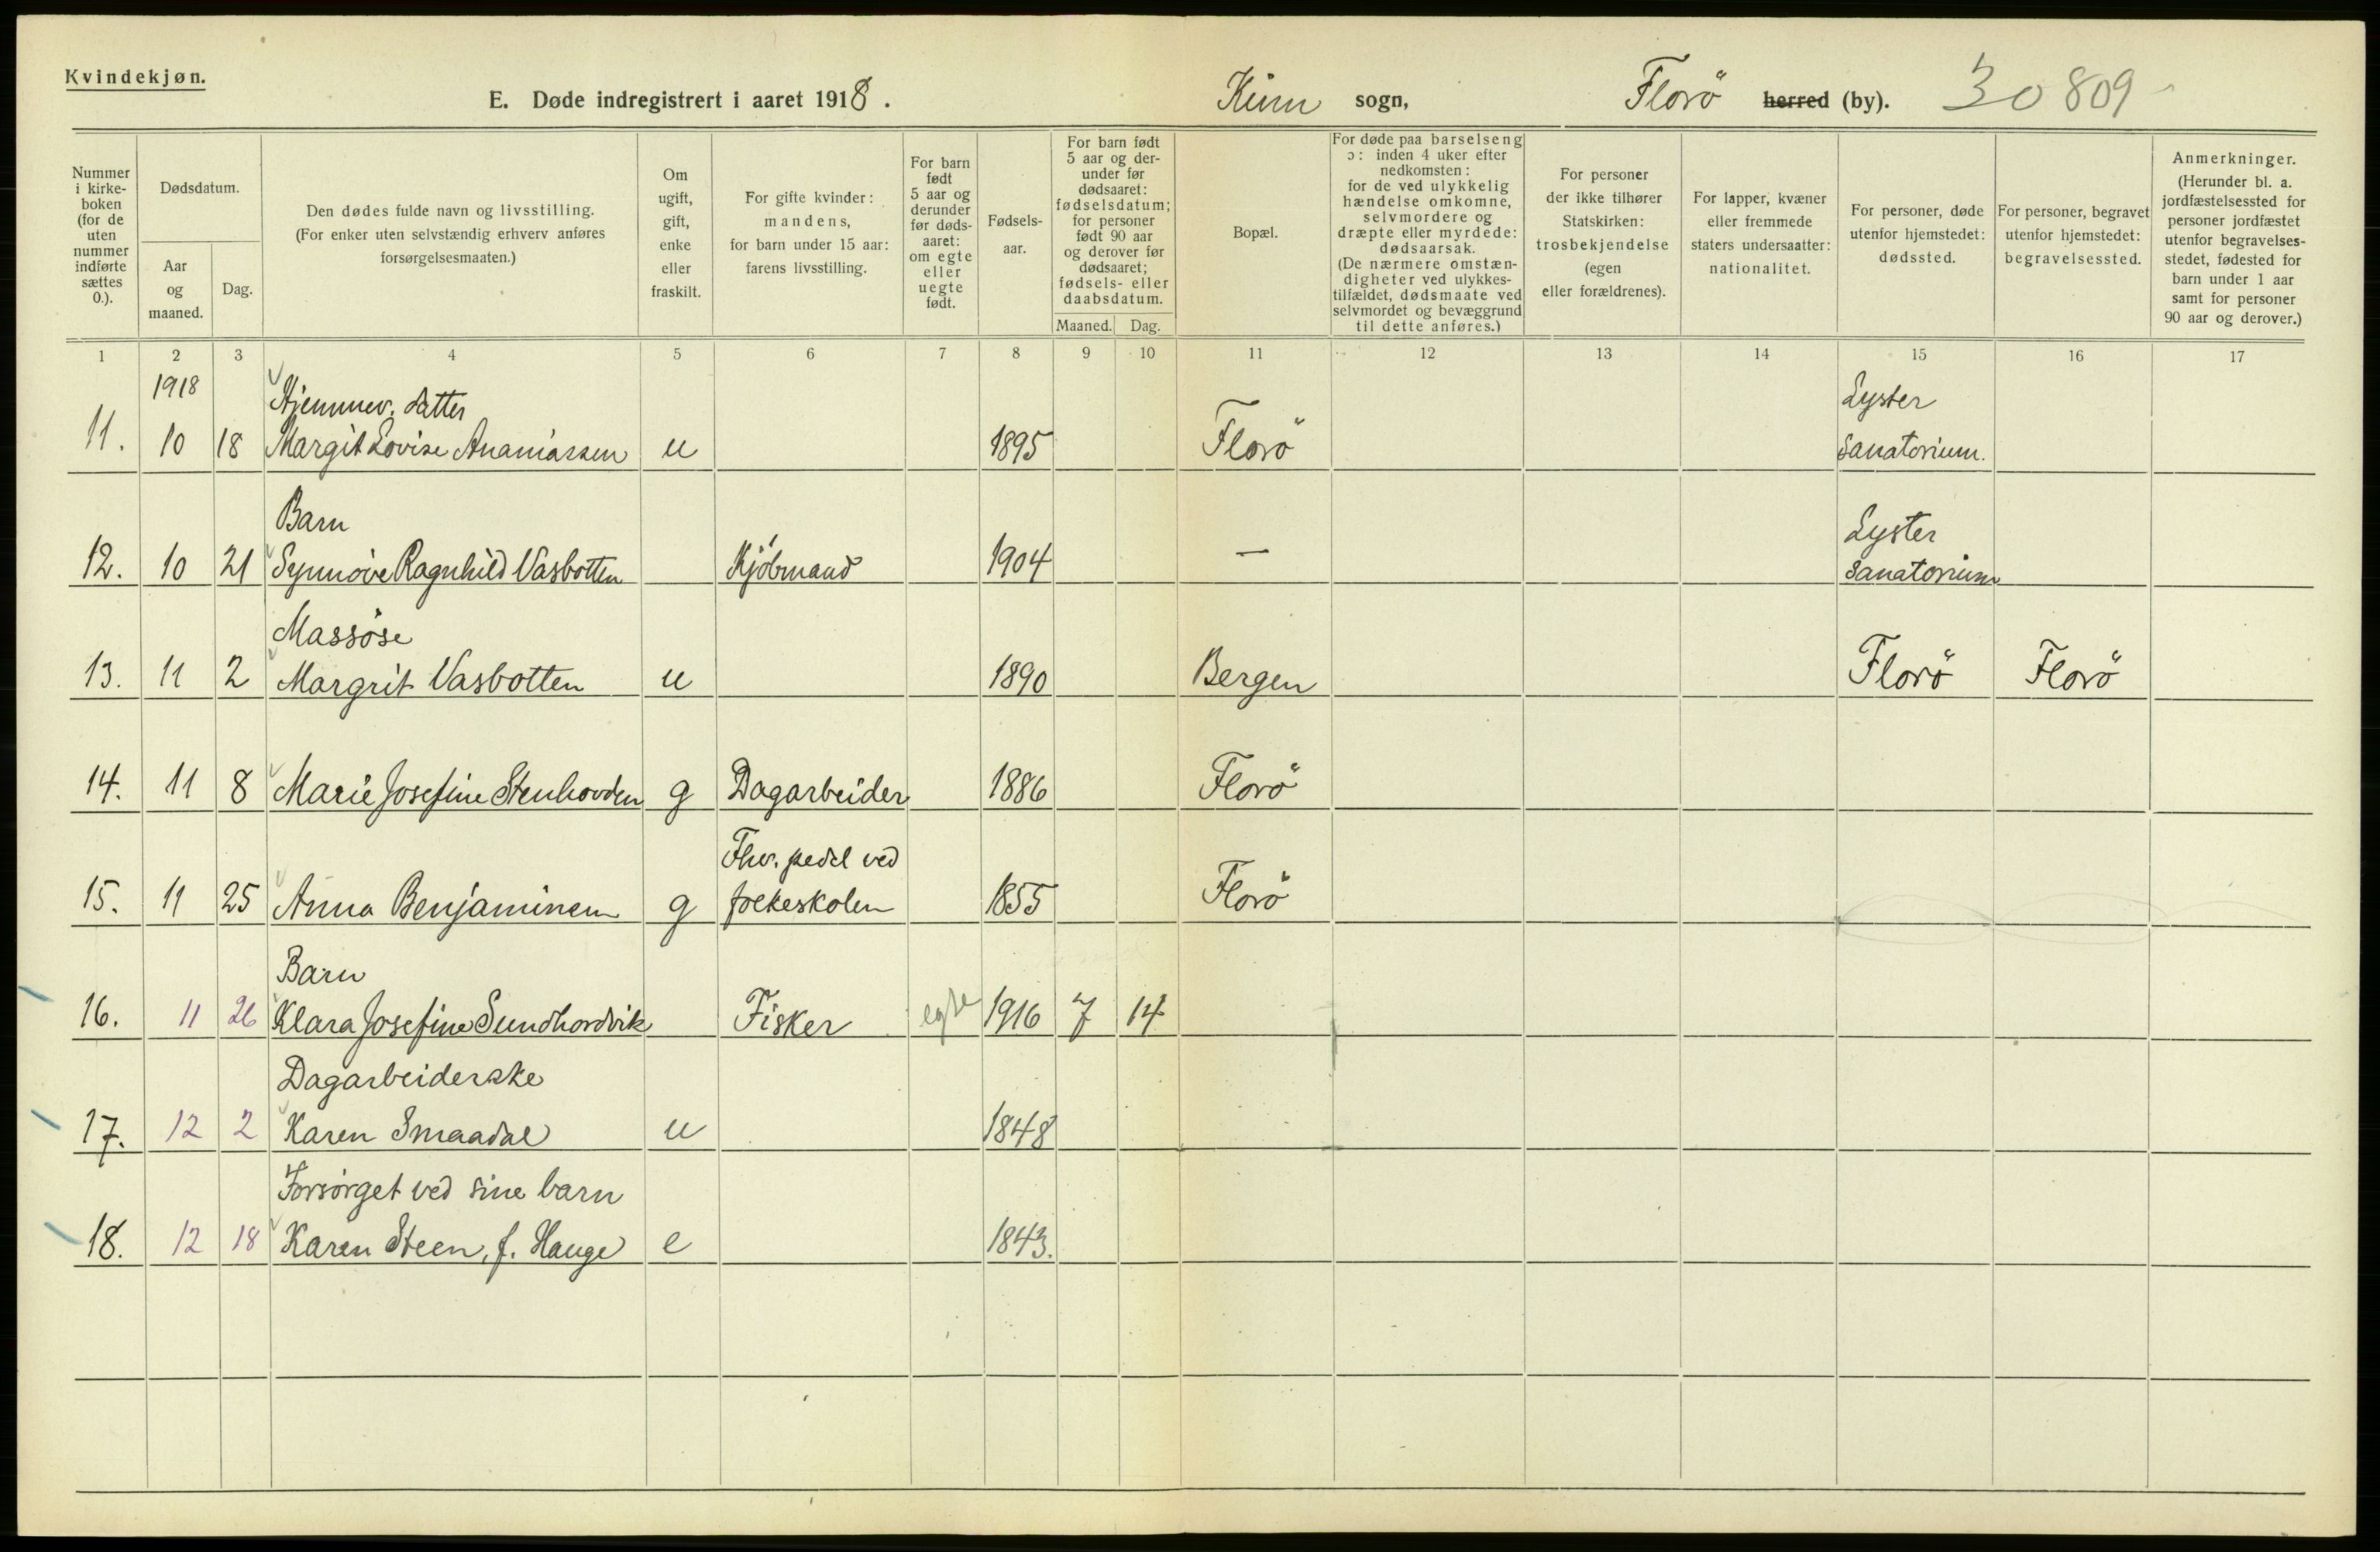 Kvindekjøn.
E. Døde indregistrert i aaret 1918.
Kinn sogn,
Florö herred (by).
30 809
Nummer i kirke-boken (for de uten nummer indførte sættes 0.).
Dødsdatum.
Aar og maaned.
Dag.
Den dødes fulde navn og livsstilling.
(For enker uten selvstændig erhverv anføres forsørgelsesmaaten.)
Om ugift, gift, enke eller fraskilt.
For gifte kvinder: mandens, for barn under 15 aar: farens livsstilling.
For barn født 5 aar og derunder før døds-aaret: om egte eller uegte født.
Fødsels-aar.
For barn født 5 aar og der-under før dødsaaret: fødselsdatum; for personer født 90 aar og derover før dødsaaret; fødsels- eller daabsdatum.
Maaned. Dag.
Bopæl.
For døde paa barselseng ɔ: inden 4 uker efter nedkomsten: for de ved ulykkelig hændelse omkomne, selvmordere og dræpte eller myrdede: dødsaarsak.
(De nærmere omstæn-digheter ved ulykkes-tilfældet, dødsmaate ved selvmordet og bevæggrund til dette anføres.)
For personer der ikke tilhører Statskirken: trosbekjendelse (egen eller forældrenes).
For lapper, kvæner eller fremmede staters undersaatter: nationalitet.
For personer, døde utenfor hjemstedet: dødssted.
For personer, begravet utenfor hjemstedet: begravelsessted.
Anmerkninger.
(Herunder bl. a. jordfæstelsessted for personer jordfæstet utenfor begravelses-stedet, fødested for barn under 1 aar samt for personer 90 aar og derover.)
1 2 3 4 5 6 7 8 9 10 11 12 13 14 15 16 17
1918 Hjemmev. datter Lyster
11. 10 18 Margit Lovise Ananiassen u 1895 Florö Sanatorium.
Barn Lyster
12. 10 21 Synnöve Ragnhild Vasbotten Kjöbmand 1904 — Sanatorium
Massöse
13. 11 2 Margrit Vasbotten u 1890 Bergen Florö Florö
14. 11 8 Marie Josefine Stenhovden g Dagarbeider 1886 Florö
Fhv. pedel ved
15. 11 25 Anna Benjaminsen g folkeskolen 1855 Florö
Barn
16. 11 26 Klara Josefine Sundhordvik Fisker egte 1916 7 14
Dagarbeiderske
17. 12 2 Karen Smaadal u 1848
Forsörget ved sine barn
18. 12 18 Karen Steen, f. Hauge e 1843.